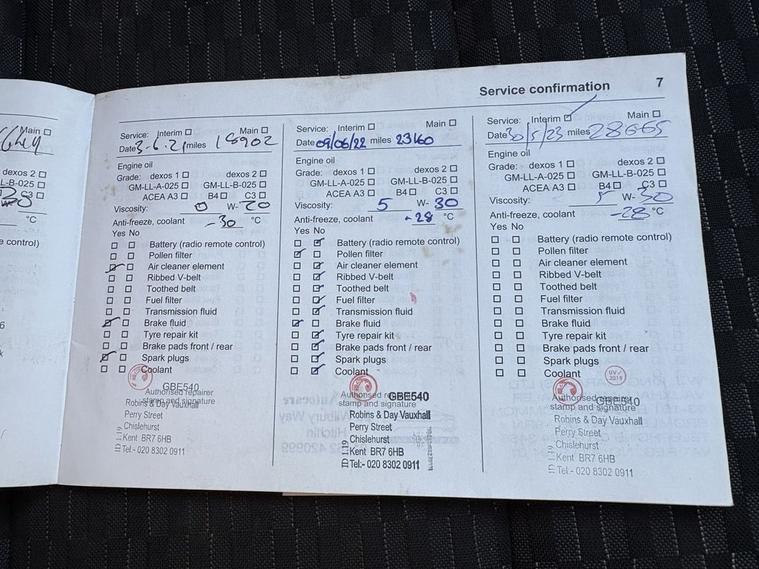 Service confirmation 7
Main ☐
dexos 2 ☐
LL-B-025 ☐
C3 ☐
°C
control)
Service: Interim ☐ Main ☐
Date 3-6.21 miles 18902
Engine oil
Grade: dexos 1 ☐ dexos 2 ☐
GM-LL-A-025 ☐ GM-LL-B-025 ☐
ACEA A3 ☐ B4 ☐ C3 ☐
Viscosity: 0 W- 20
Anti-freeze, coolant -30 °C
Yes No
Battery (radio remote control)
Pollen filter
Air cleaner element
Ribbed V-belt
Toothed belt
Fuel filter
Transmission fluid
Brake fluid
Tyre repair kit
Brake pads front / rear
Spark plugs
Coolant
GBE540
Authorised repairer
stamp and signature
Robins & Day Vauxhall
Perry Street
Chislehurst
Kent BR7 6HB
Tel:- 020 8302 0911
Service: Interim ☐ Main ☐
Date 09/06/22 miles 23160
Engine oil
Grade: dexos 1 ☐ dexos 2 ☐
GM-LL-A-025 ☐ GM-LL-B-025 ☐
ACEA A3 ☐ B4 ☐ C3 ☐
Viscosity: 5 W- 30
Anti-freeze, coolant -28 °C
Yes No
Battery (radio remote control)
Pollen filter
Air cleaner element
Ribbed V-belt
Toothed belt
Fuel filter
Transmission fluid
Brake fluid
Tyre repair kit
Brake pads front / rear
Spark plugs
Coolant
GBE540
Authorised repairer
stamp and signature
Robins & Day Vauxhall
Perry Street
Chislehurst
Kent BR7 6HB
ID 1.19 Tel:- 020 8302 0911
Service: Interim ☑ Main ☐
Date 30/5/23 miles 28665
Engine oil
Grade: dexos 1 ☐ dexos 2 ☐
GM-LL-A-025 ☐ GM-LL-B-025 ☐
ACEA A3 ☐ B4 ☐ C3 ☐
Viscosity: 5 W- 30
Anti-freeze, coolant -28 °C
Yes No
Battery (radio remote control)
Pollen filter
Air cleaner element
Ribbed V-belt
Toothed belt
Fuel filter
Transmission fluid
Brake fluid
Tyre repair kit
Brake pads front / rear
Spark plugs
Coolant
GBE540
Authorised repairer
stamp and signature
Robins & Day Vauxhall
Perry Street
Chislehurst
Kent BR7 6HB
Tel:- 020 8302 0911